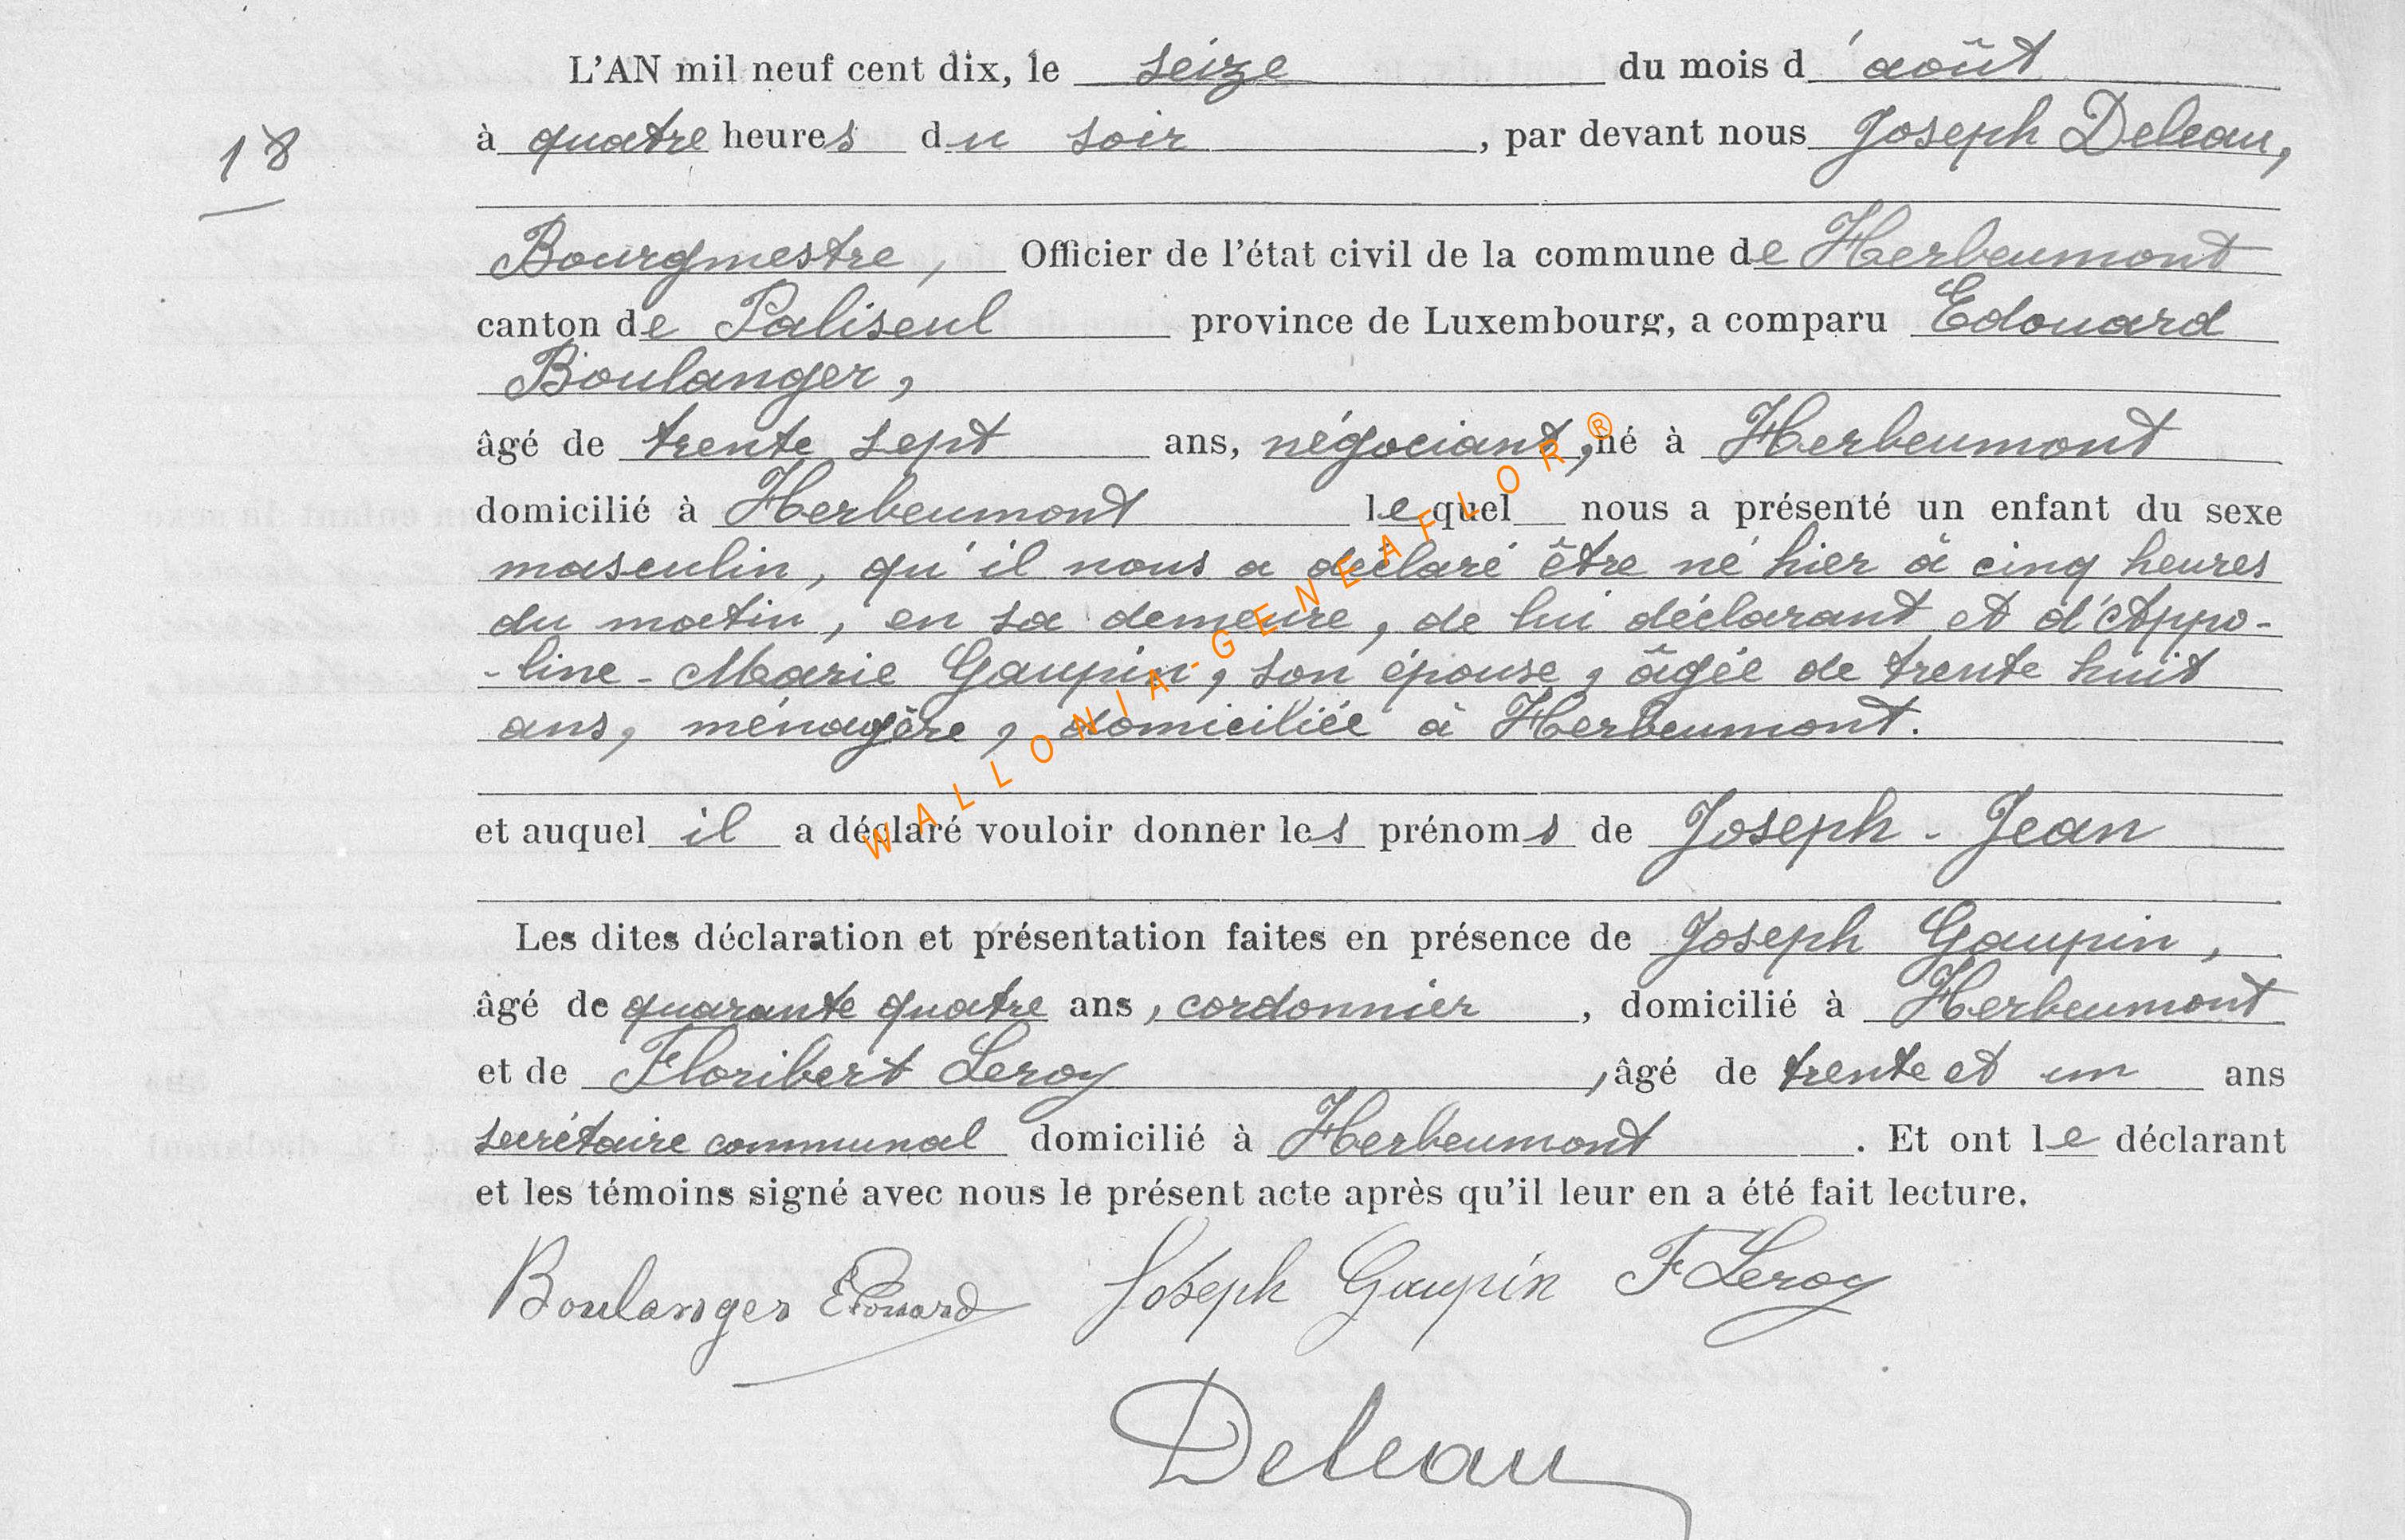 L'AN mil neuf cent dix, le seize du mois d'août
18
à quatre heures du soir, par devant nous Joseph Deleau,
Bourgmestre, Officier de l'état civil de la commune de Herbeumont
canton de Paliseul province de Luxembourg, a comparu Edouard
Boulanger,
âgé de trente sept ans, négociant, né à Herbeumont
domicilié à Herbeumont lequel nous a présenté un enfant du sexe
masculin, qu'il nous a déclaré être né hier à cinq heures
du matin, en sa demeure, de lui déclarant et d'Appo-
-line-Marie Gaupin, son épouse, âgée de trente huit
ans, ménagère, domiciliée à Herbeumont.
et auquel il a déclaré vouloir donner les prénoms de Joseph-Jean
Les dites déclaration et présentation faites en présence de Joseph Gaupin,
âgé de quarante quatre ans, cordonnier, domicilié à Herbeumont
et de Floribert Leroy, âgé de trente et un ans
secrétaire communal domicilié à Herbeumont. Et ont le déclarant
et les témoins signé avec nous le présent acte après qu'il leur en a été fait lecture.
Boulanger Edouard Joseph Gaupin F Leroy
Deleau
WALLONIA-GENEAFLOR®